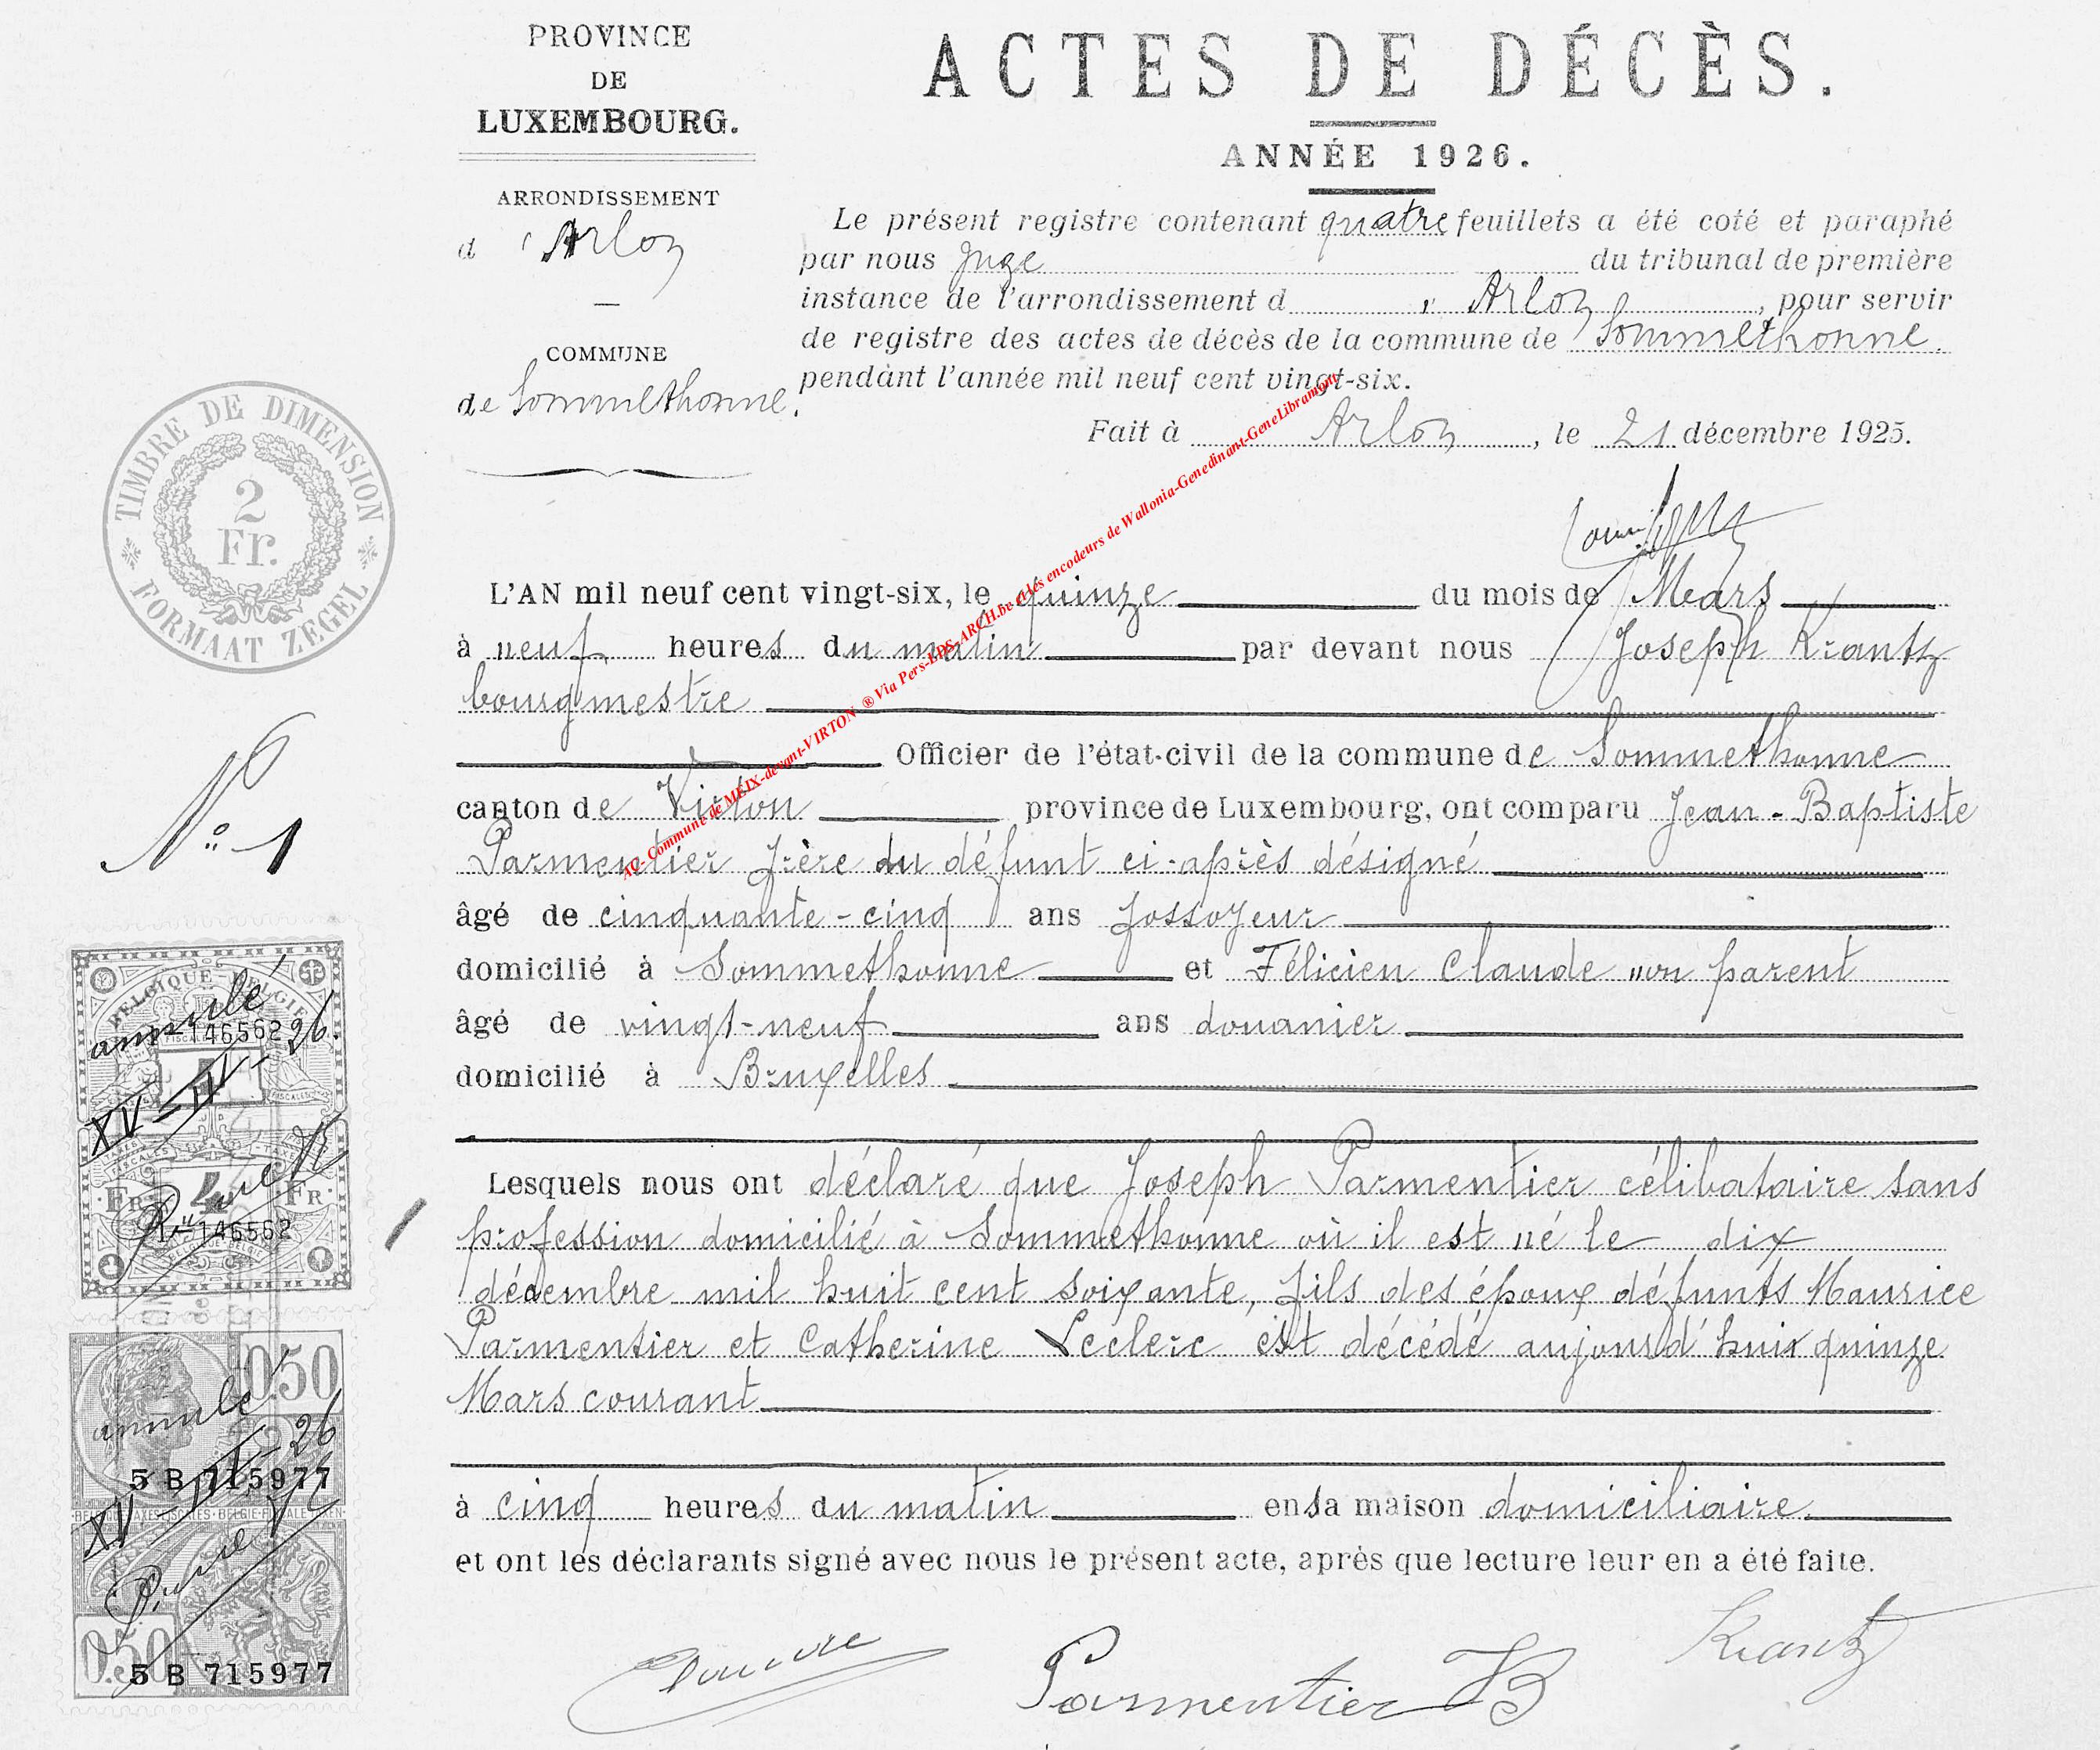 PROVINCE
DE
LUXEMBOURG.
ARRONDISSEMENT
d'Arlon
COMMUNE
de Sommethonne.
ACTES DE DÉCÈS.
ANNÉE 1926.
Le présent registre contenant quatre feuillets a été coté et paraphé
par nous Juge du tribunal de première
instance de l'arrondissement d'Arlon, pour servir
de registre des actes de décès de la commune de Sommethonne.
pendant l'année mil neuf cent vingt-six.
Fait à Arlon, le 21 décembre 1925.
TIMBRE DE DIMENSION
2
Fr.
FORMAAT ZEGEL
L'AN mil neuf cent vingt-six, le quinze du mois de Mars
à neuf heures du matin par devant nous Joseph Krantz
bourgmestre
Officier de l'état-civil de la commune de Sommethonne
canton de Virton province de Luxembourg, ont comparu Jean-Baptiste
Parmentier frère du défunt ci-après désigné
âgé de cinquante-cinq ans fossoyeur
domicilié à Sommethonne et Félicien Claude non parent
âgé de vingt-neuf ans douanier
domicilié à Bruxelles
Lesquels nous ont déclaré que Joseph Parmentier célibataire sans
profession domicilié à Sommethonne où il est né le dix
décembre mil huit cent soixante, fils des époux défunts Maurice
Parmentier et Catherine Leclerc est décédé aujourd'hui quinze
Mars courant
à cinq heures du matin en sa maison domiciliaire.
et ont les déclarants signé avec nous le présent acte, après que lecture leur en a été faite.
Parmentier JB
Krantz
No 1
BELGIQUE-BELGIË
annulé
146562 26.
XV-III-
FR 4 FR
146562
0.50
annulé
26
5 B 715977
XV
0.50
5 B 715977
AC- Commune de MEIX-devant-VIRTON ® Via Pers-EDS-ARCH.be et les encodeurs de Wallonia-Genedinant-GeneLibramont